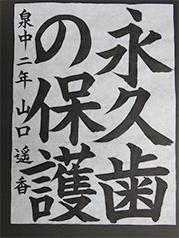 永久歯
の保護
泉中二年 山口遥香